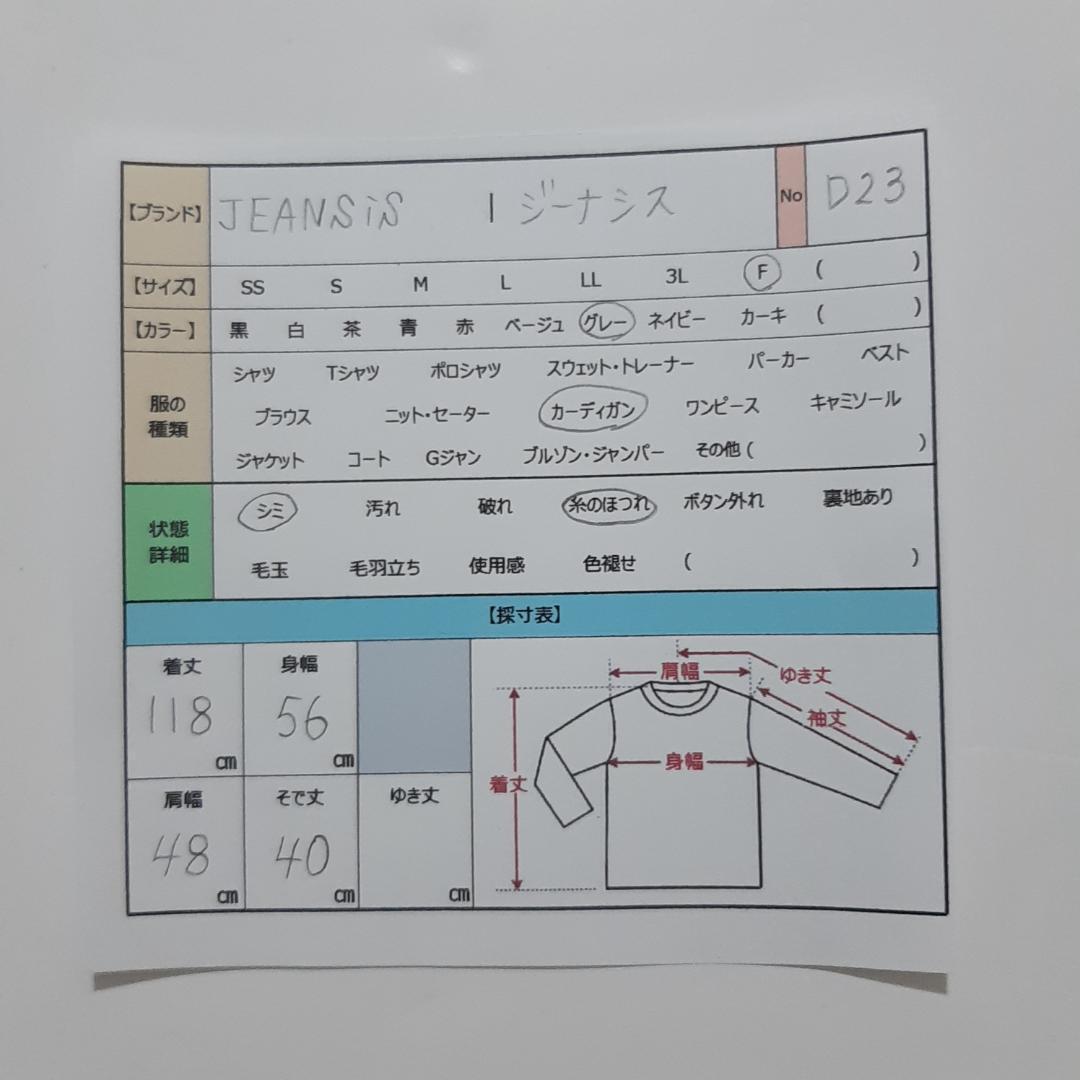 【ブランド】 JEANSiS | ジーナシス No D23
【サイズ】 SS S M L LL 3L F ( )
【カラー】 黒 白 茶 青 赤 ベージュ グレー ネイビー カーキ ( )
服の種類
シャツ Tシャツ ポロシャツ スウェット・トレーナー パーカー ベスト
ブラウス ニット・セーター カーディガン ワンピース キャミソール
ジャケット コート Gジャン ブルゾン・ジャンパー その他 ( )
状態詳細
シミ 汚れ 破れ 糸のほつれ ボタン外れ 裏地あり
毛玉 毛羽立ち 使用感 色褪せ ( )
【採寸表】
着丈 身幅
118 cm 56 cm
肩幅 そで丈 ゆき丈
48 cm 40 cm cm
肩幅
ゆき丈
袖丈
身幅
着丈